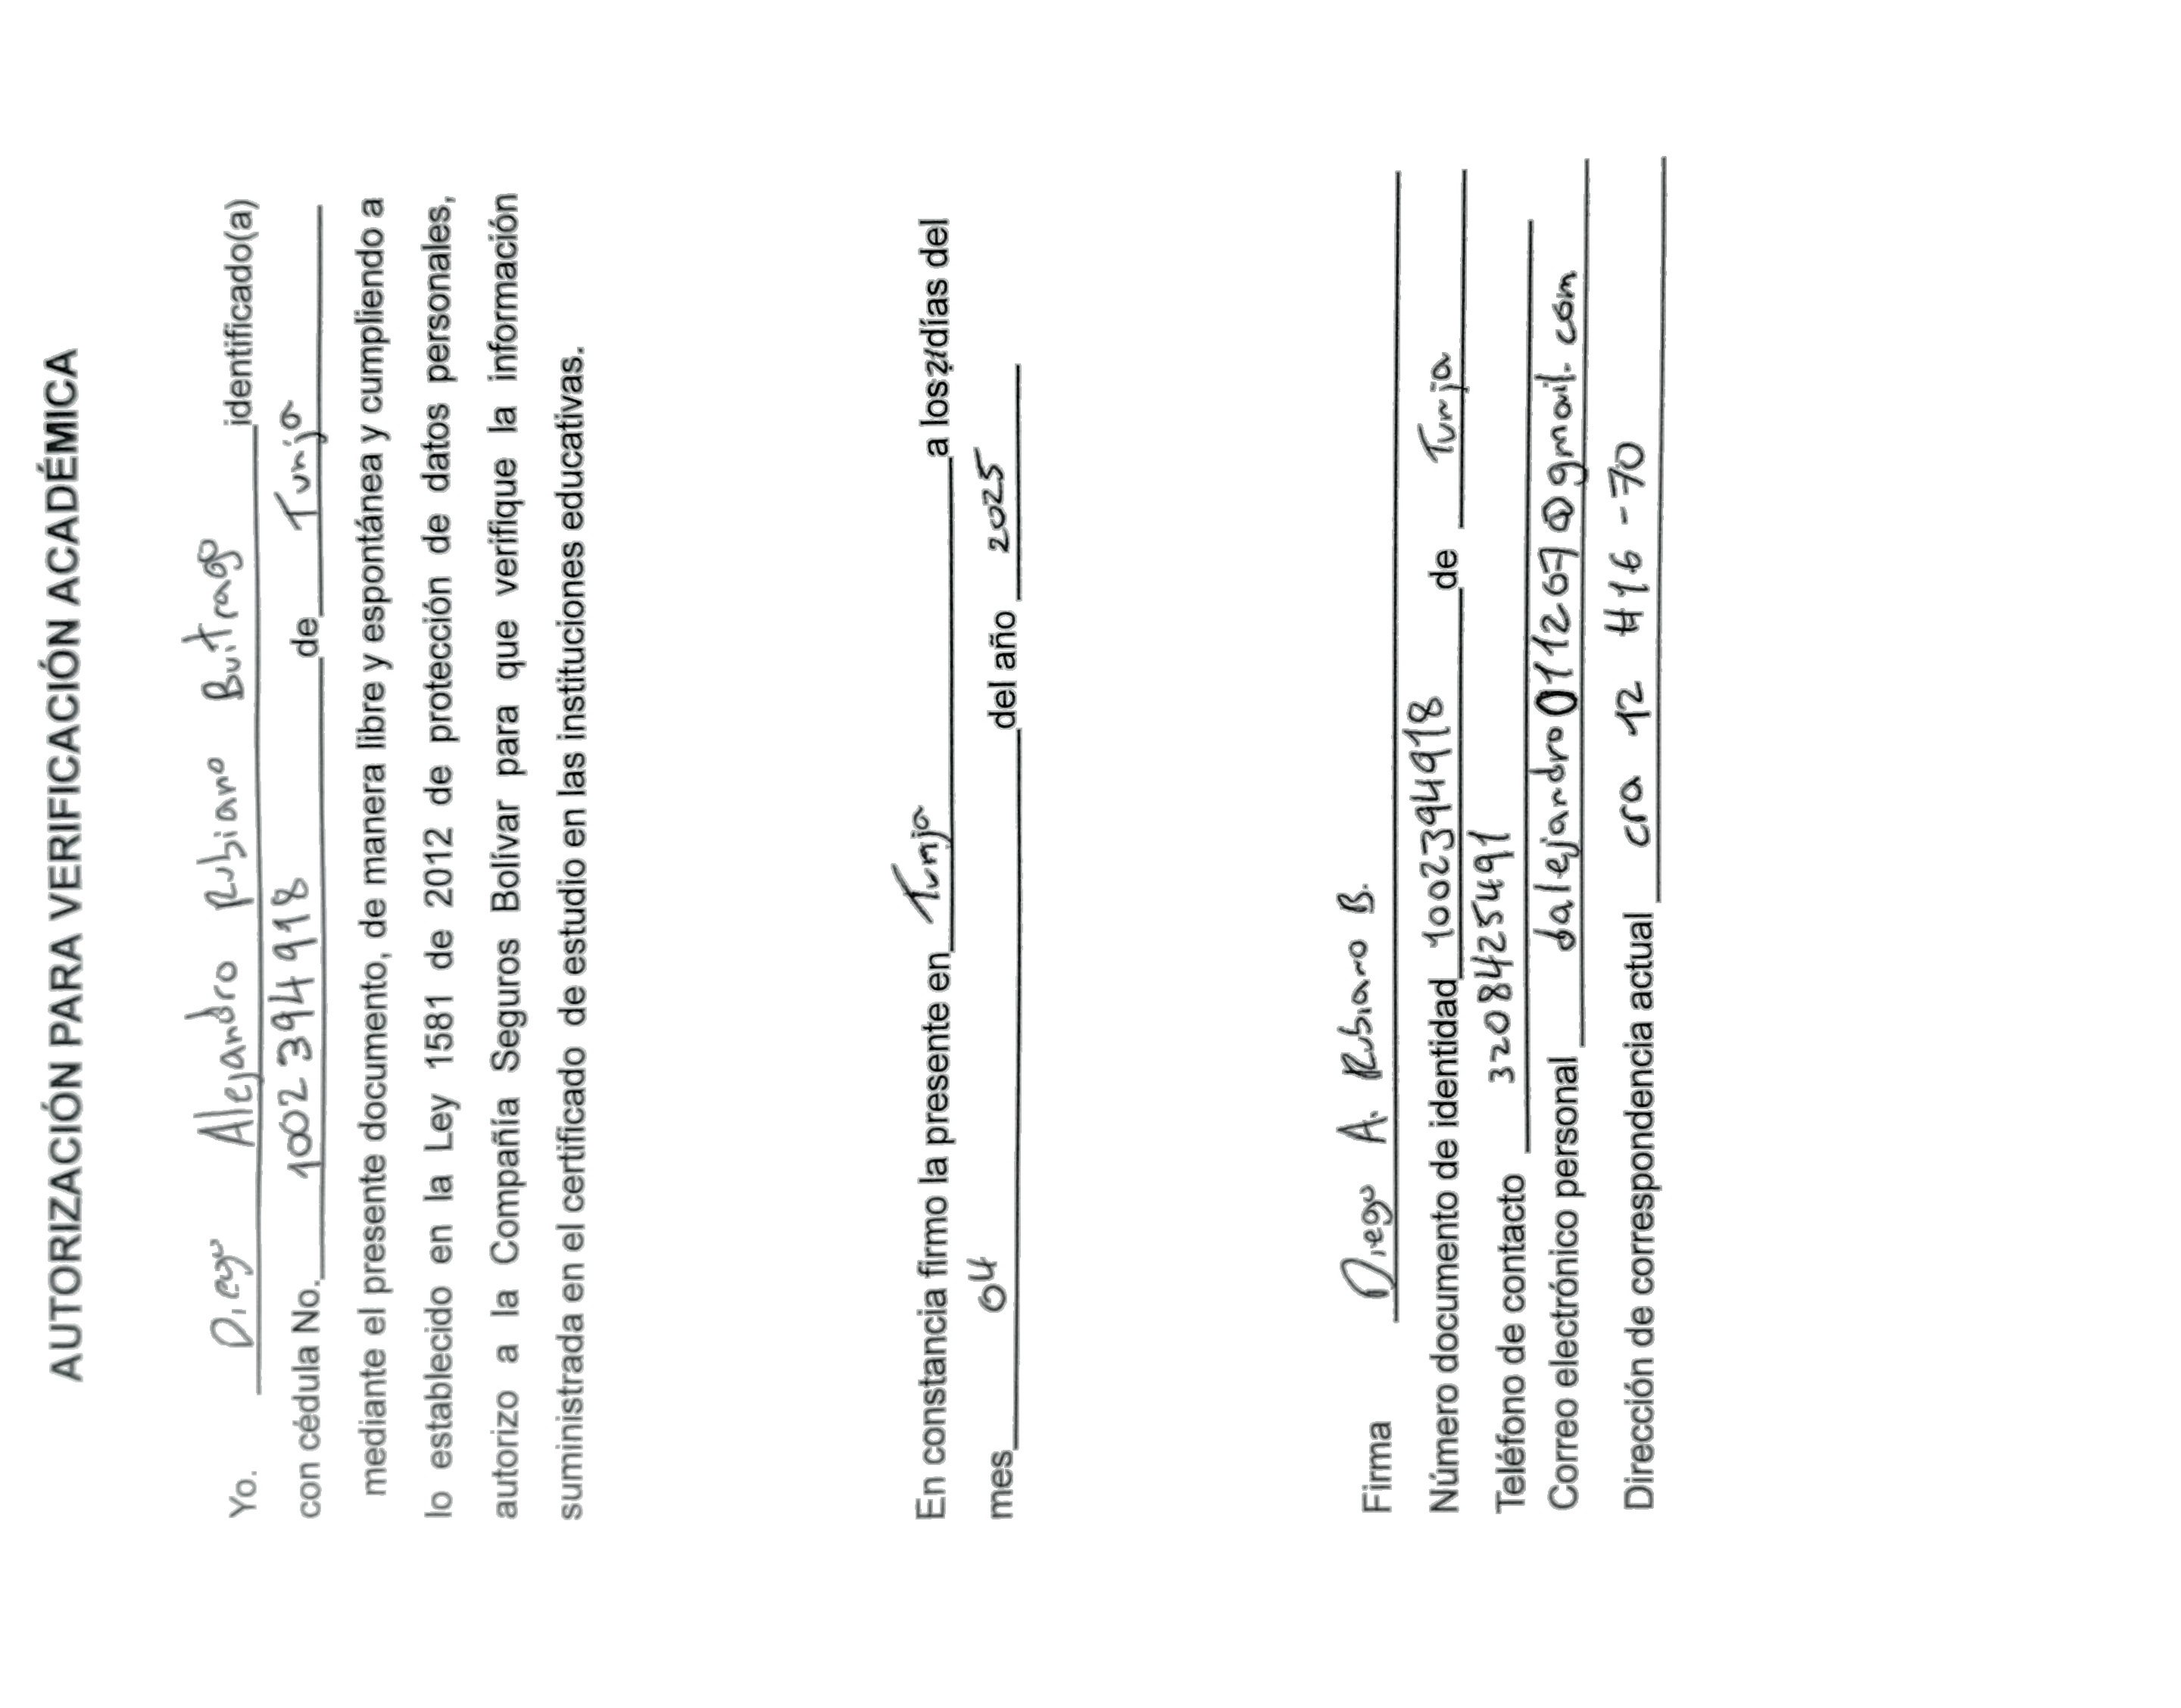 AUTORIZACIÓN PARA VERIFICACIÓN ACADÉMICA
Yo. Diego Alejandro Rubiano Buitrago identificado(a)
con cédula No. 1002394918 de Tunja
mediante el presente documento, de manera libre y espontánea y cumpliendo a
lo establecido en la Ley 1581 de 2012 de protección de datos personales,
autorizo a la Compañía Seguros Bolívar para que verifique la información
suministrada en el certificado de estudio en las instituciones educativas.
En constancia firmo la presente en Tunja a los 21 días del
mes 04 del año 2025
Firma Diego A. Rubiano B.
Número documento de identidad 1002394918 de Tunja
Teléfono de contacto 3208425491
Correo electrónico personal dalejandro011207@gmail.com
Dirección de correspondencia actual cra 12 #16-70